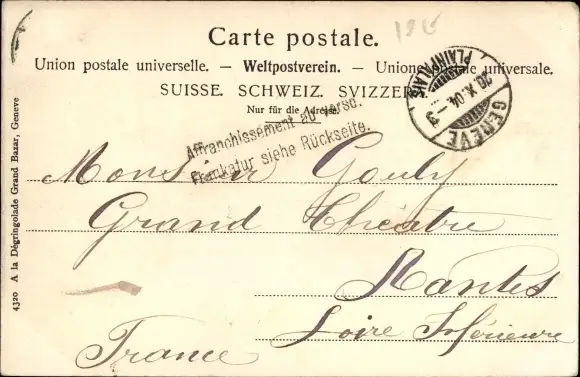 Carte postale.
Union postale universelle. — Weltpostverein. — Unione postale universale.
SUISSE. SCHWEIZ. SVIZZERA.
Nur für die Adresse.
Affranchissement au verso.
Frankatur siehe Rückseite.
GENÈVE
20.X.04.-3
PLAINPALAIS
Monsieur Gouly
Grand Théâtre
Nantes
Loire Inférieure
France
4320 A la Dégringolade Grand Bazar, Geneve